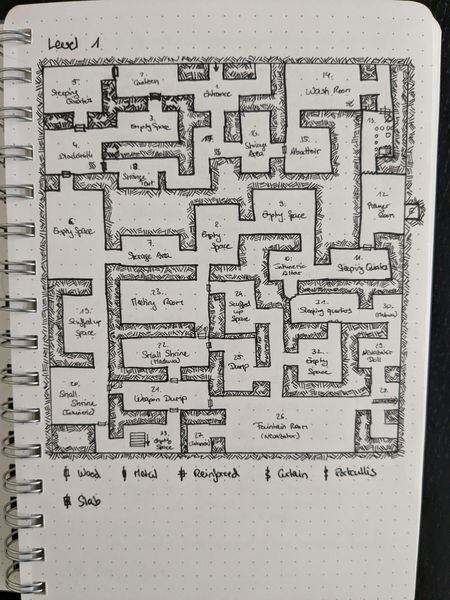 Level 1
5.
Sleeping
Quarters
2.
Canteen
1.
Entrance
14.
Wash Room
3.
Empty Space
13.
4.
16.
Storage
Area
15.
18.
6.
Empty Space
8.
Empty
Space
9.
Empty Space
12.
Prayer
Room
7.
Storage Area
10.
Altar
11.
Sleeping Quarters
23.
Melting Room
24.
Stuffed
up
Space
31.
Sleeping quarters
30.
19.
Stuffed up
Space
22.
Small Shrine
25.
Dump
32.
Empty
Space
29.
Doll
20.
Small
Shrine
21.
Weapon Dump
28.
26.
Fountain Room
33.
Empty
Space
27.
Wood
Metal
Reinforced
Curtain
Portcullis
Slab